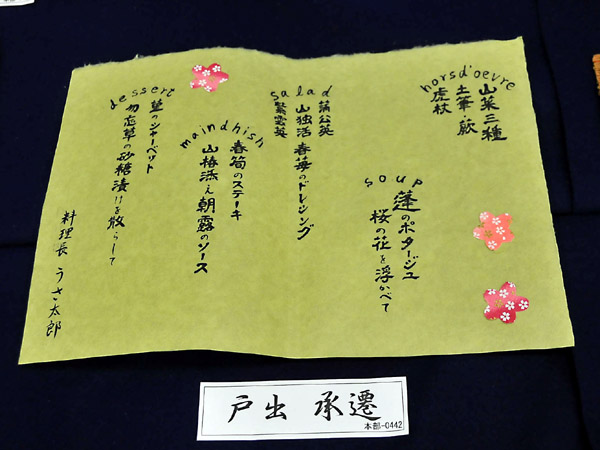 horsd'oevre
山菜三種
土筆・蕨
虎杖
soup
蓬のポタージュ
桜の花を浮かべて
salad
蒲公英
山独活 春苺のドレシング
紫雲英
maindhish
春筍のステーキ
山椿添え 朝露のソース
dessert
菫のシャーベット
勿忘草の砂糖漬けを散らして
料理長 うさ太郎
戸出 承遷
本部-0442